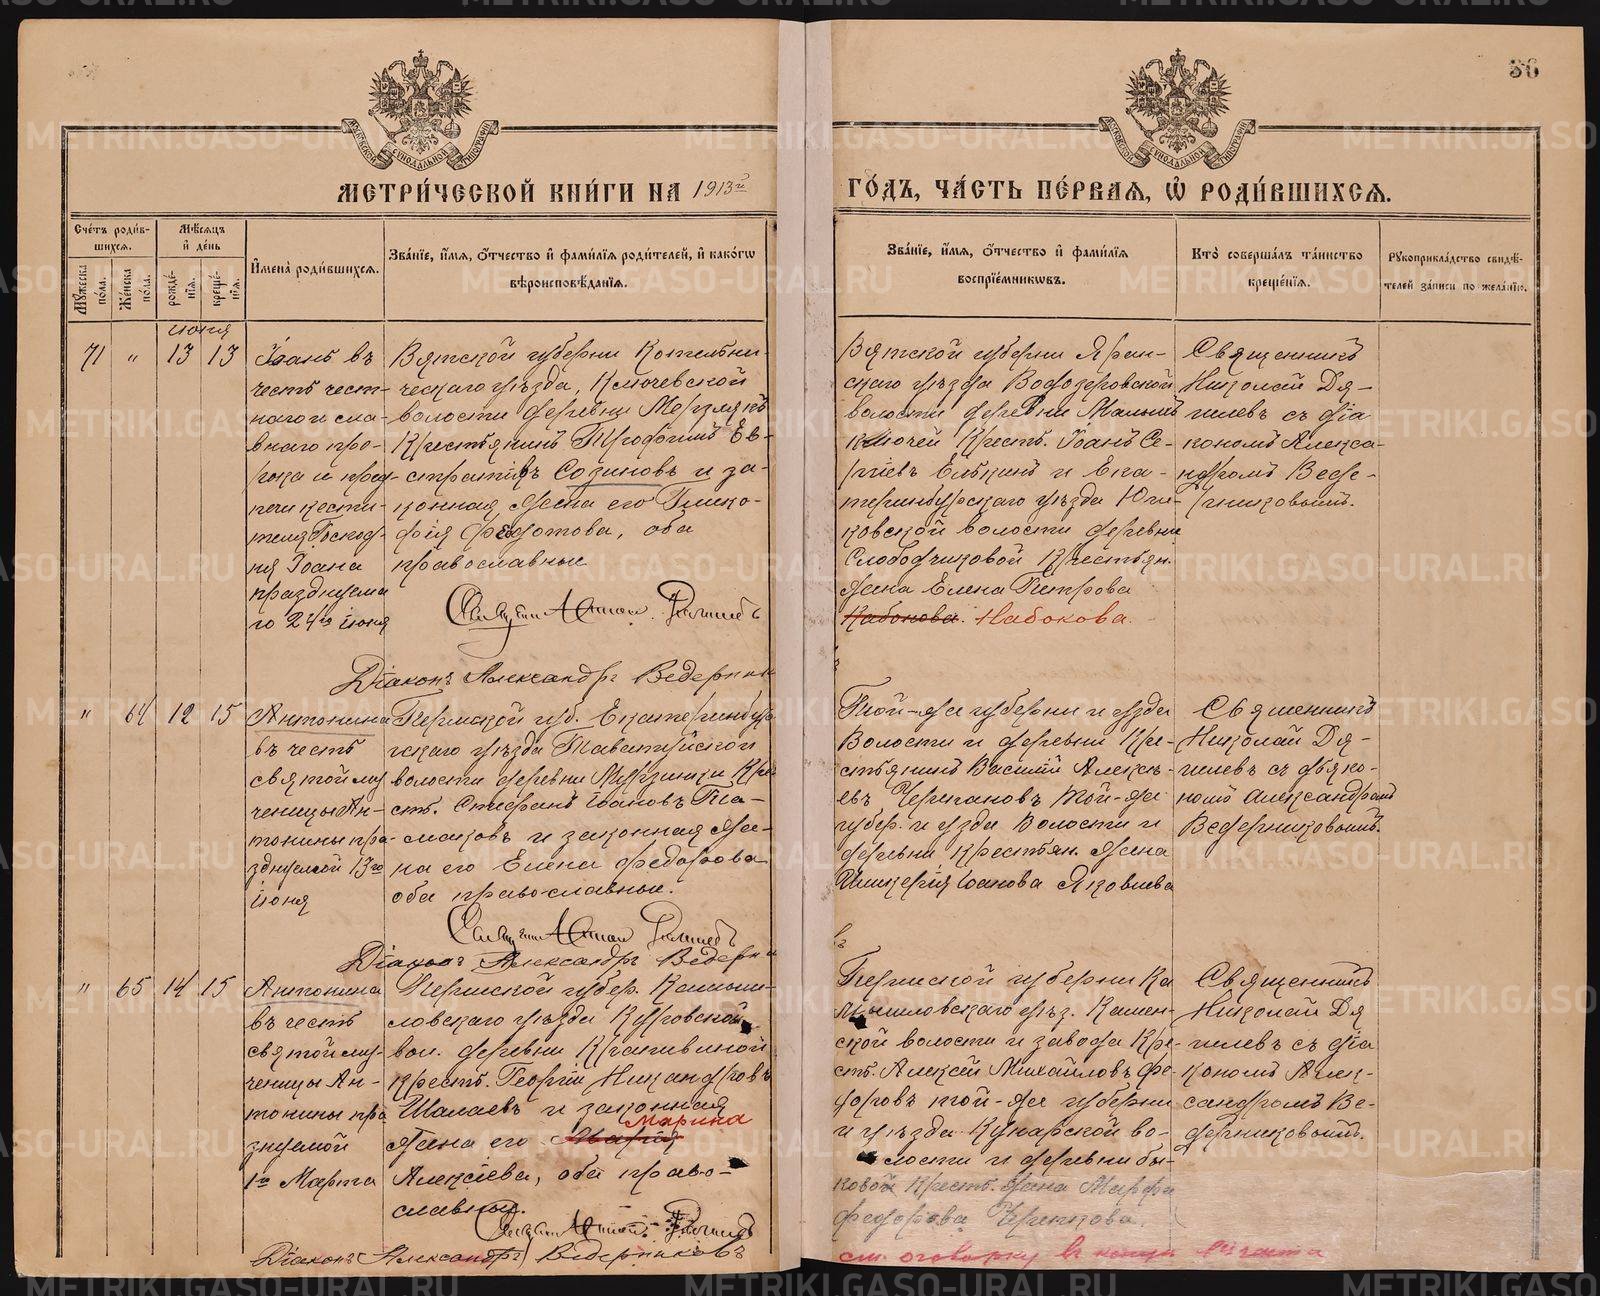 36
МЕТРИ́ЧЕСКОЙ КНИ́ГИ НА 1913й
ГО́ДЪ, ЧА́СТЬ ПЕ́РВАЯ, Ѡ РОДИ́ВШИХСЯ.
Сче́тъ роди́в-
шихся.
Мѣ́сяцъ
и де́нь
Му́жеска по́ла.
Же́нска по́ла.
рожде́-
нїя.
креще́-
нїя.
И҆мена̀ роди́вшихся.
Зва́нїе, и҆́мя, ѻ҆́тчество и҆ фами́лїя роди́телей, и҆ како́гѡ
вѣроисповѣ́данїя.
Зва́нїе, и҆́мя, ѻ҆́тчество и҆ фами́лїя
воспрїе́мникѡвъ.
Кто̀ соверша́лъ та́инство
креще́нїя.
Рукоприкла́дство свидѣ́-
телей за́писи по жела́нїю.
Іюня
71 " 13 13
Іоанъ въ
честь чест-
наго и сла-
внаго про-
рока и пред-
течи крести-
теля Господ-
ня Іоана
празднуема
го 24го іюня
Вятской губерни Котельни-
ческаго уѣзда, Ключевской
волости деревни Мерзляки
Крестьянинъ Трофимъ Ев-
стратіевъ Созиновъ и за-
конная жена его Глике-
рія Федотова, оба
православные
Вятской губерни Яран-
скаго уѣзда Водозеровской
волости деревни Малыхъ
ключей Крест. Іоанъ Се-
ргіевъ Елькинъ и Ека-
теринбургскаго уѣзда
ковской волости деревни
Слободчиковой Крестьян.
жена Елена Петрова
Кабокова. Набокова.
Священникъ
Николай Дя-
гилевъ съ діа
кономъ Алекса-
ндромъ Веде-
рниковымъ.
Діаконъ Александръ Ведерник
" 64 12 15
Антонина
въ честь
святой му
ченицы Ан-
тонины пра-
зднуемой 13го
іюня
Пермской губ. Екатеринбур
гскаго уѣзда Таватуйской
волости деревни Мурзинки Кре
ст. Стефанъ Іоановъ Пла-
маковъ и законная же-
на его Елена Федорова
оба православные.
Той-же губерни и уѣзда
Волости и деревни Кре-
стьянинъ Василій Алексѣ-
евъ Черепановъ той-же
губер. и уѣзда Волости и
деревни Крестьян. жена
Гликерія Іоанова Яковлева
Священникъ
Николай Дя-
гилевъ съ дьяко-
номъ Александромъ
Ведерниковымъ.
Діаконъ Александръ Ведерн
" 65 14 15
Антонина
въ честь
святой му-
ченицы Ан-
тонины пра
зднуемой
1го Марта
Пермской губер. Камыш-
ловскаго уѣзда Куровской
вол. деревни Крапивиной
крест. Георгій Никандровъ
Шалаевъ и законная
жена его Марія Марина
Алексіева, оба право-
славные.
Діаконъ Александръ Ведерниковъ
Пермской губерни Ка
мышловскаго уѣз. Камен-
ской волости и завода Кре-
ст. Алексѣй Михайловъ Фе-
доровъ той-же губерни
и уѣзда Кунарской во-
лости и деревни Бы-
ковой Крест. жена Марфа
Федорова Черепкова.
см. оговорку въ концѣ
Священникъ
Николай Дя
гилевъ съ діа
кономъ Алек-
сандромъ Ве-
дерниковымъ.